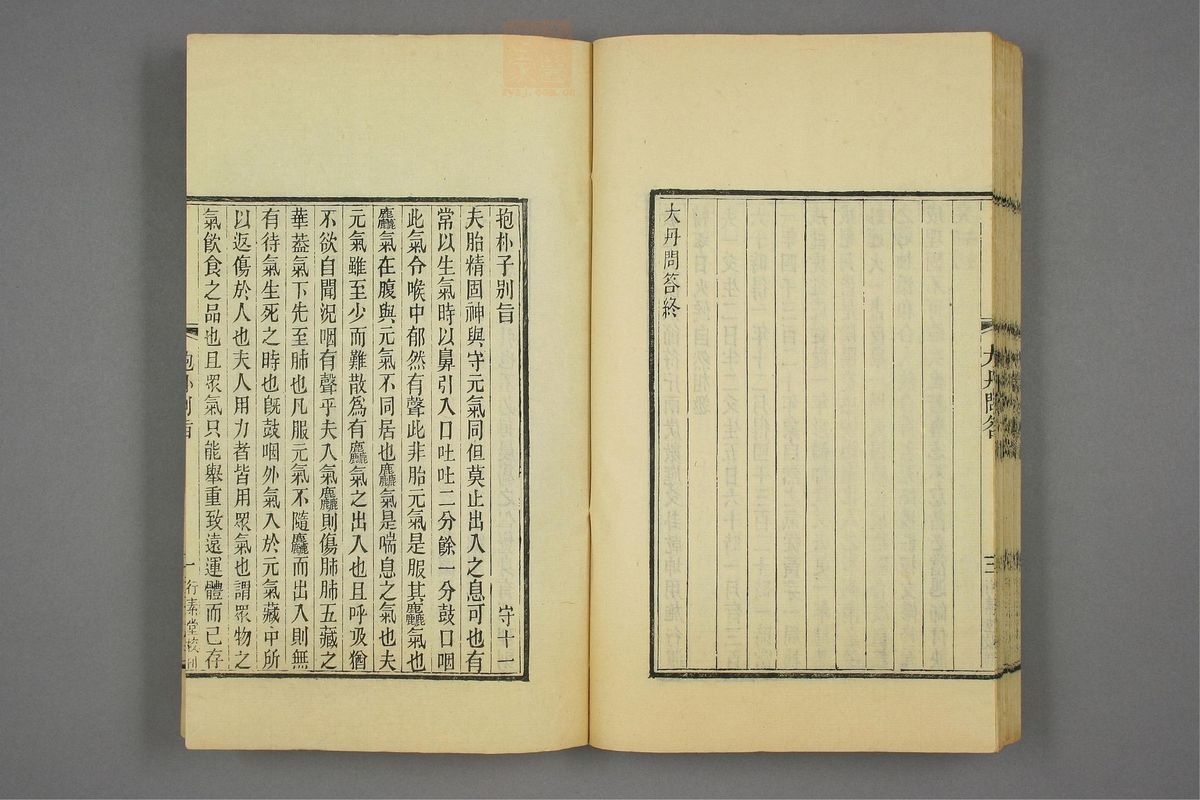 大丹問答
三
大丹問答終
抱朴子別旨
守十一
夫胎精固神與守元氣同但莫止出入之息可也有
常以生氣時以鼻引入口吐吐二分餘一分鼓口咽
此氣令喉中郁然有聲此非胎元氣是服其麤氣也
麤氣在腹與元氣不同居也麤氣是喘息之氣也夫
元氣雖至少而難散爲有麤氣之出入也且呼吸猶
不欲自聞況咽有聲乎夫入氣麤則傷肺肺五藏之
華蓋氣下先至肺也凡服元氣不隨麤而出入則無
有待氣生死之時也旣鼓咽外氣入於元氣藏中所
以返傷於人也夫人用力者皆用眾氣也謂眾物之
氣飲食之品也且眾氣只能舉重致遠運體而已存
抱朴別旨
一
行素堂校刊